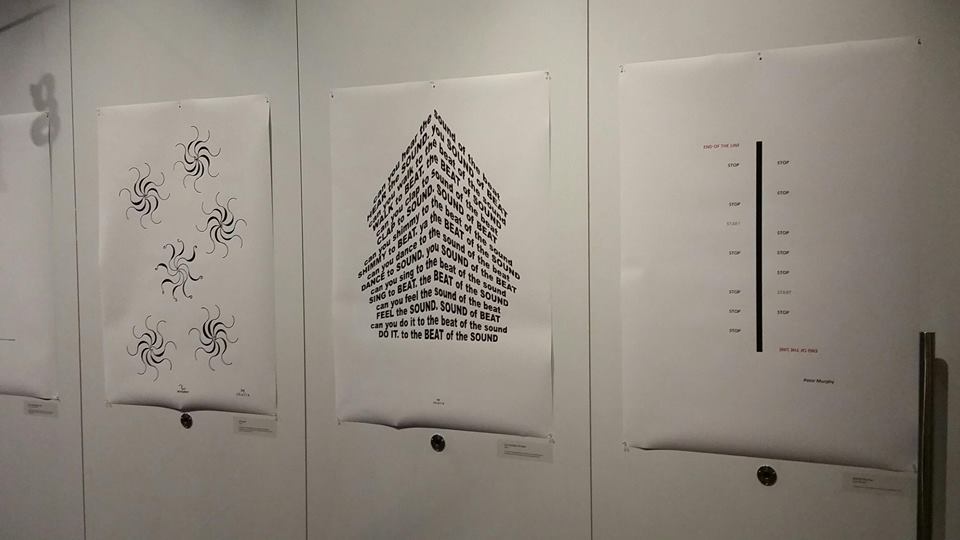 can you hear the sound of the beat
HEAR the SOUND. you SOUND of BEAT
can you walk to the beat of the sound
WALK to BEAT. the BEAT of the SOUND
can you clap to the sound of the beat
CLAP to SOUND. SOUND of the BEAT
can you shimmy to the beat of the sound
SHIMMY to BEAT. yo the BEAT of the SOUND
can you dance to the sound of the beat
DANCE to SOUND. you SOUND of the BEAT
can you sing to the beat of the sound
SING to BEAT. the BEAT of the SOUND
can you feel the sound of the beat
FEEL the SOUND. SOUND of BEAT
can you do it to the beat of the sound
DO IT. to the BEAT of the SOUND
END OF THE LINE
STOP
STOP
START
STOP
STOP
STOP
STOP
STOP
STOP
STOP
STOP
STOP
START
STOP
END OF THE LINE
Peter Murphy